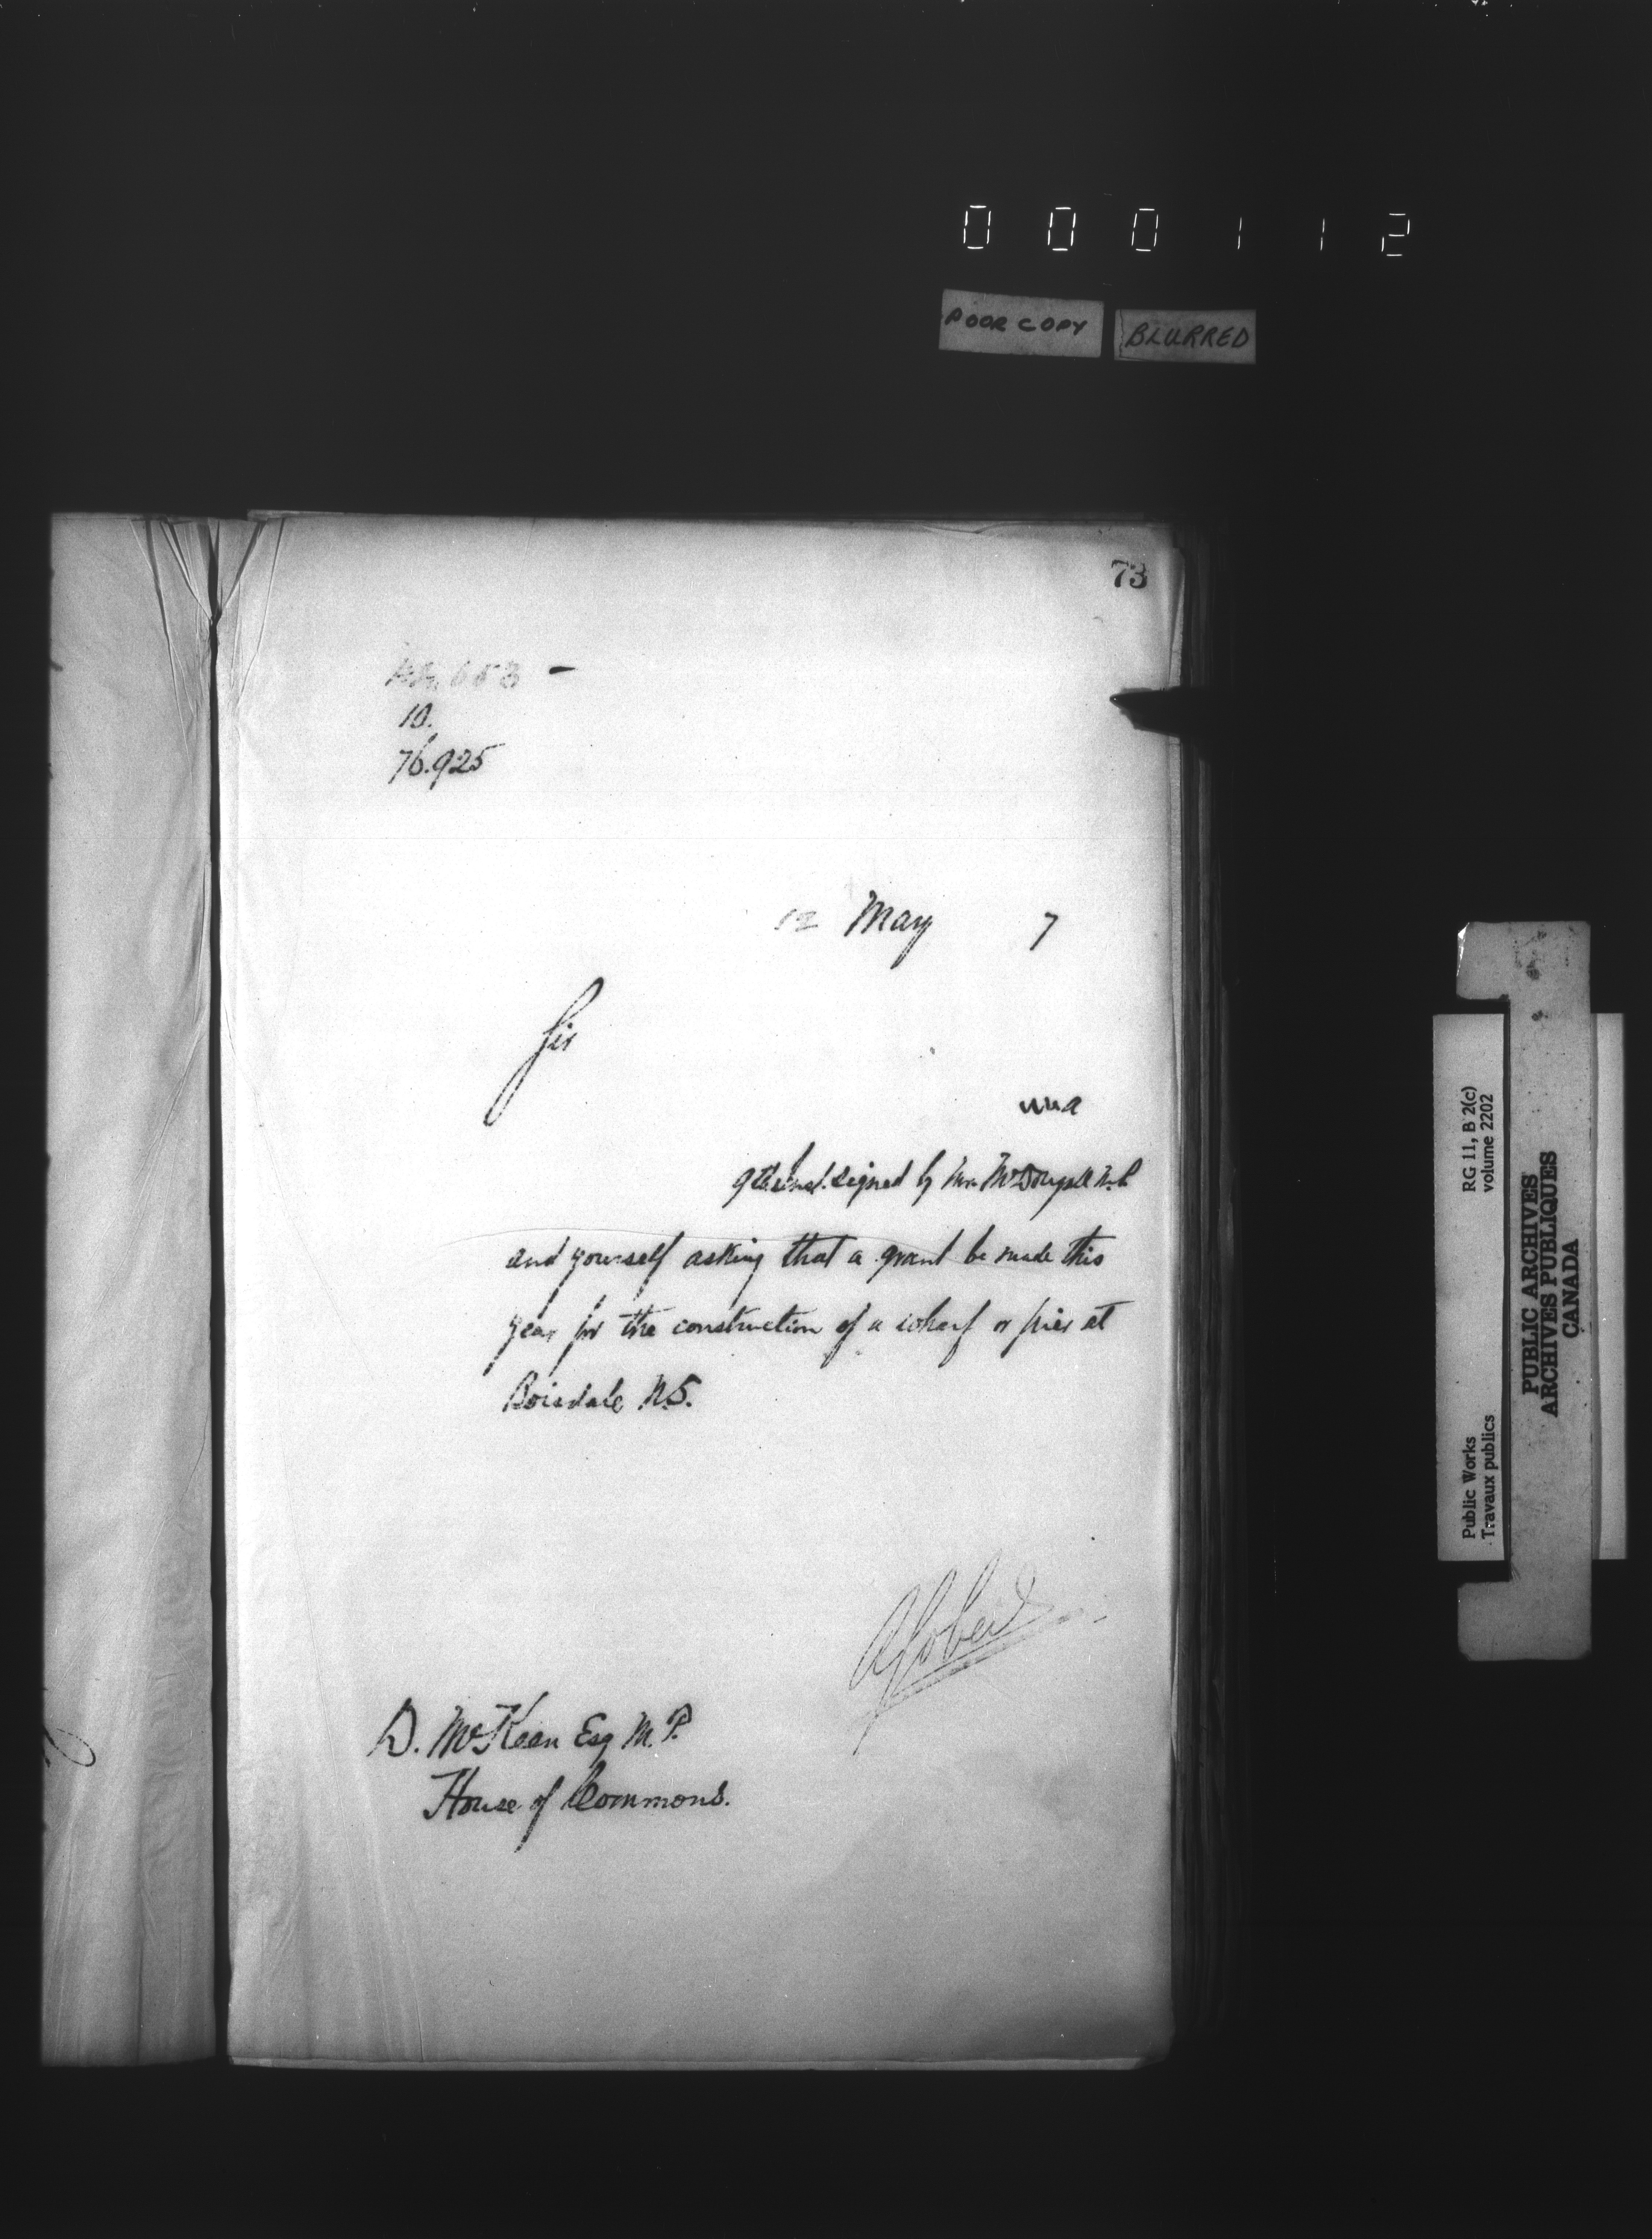 000112
POOR COPY BLURRED
73
653 -
10.
76.925
12 May 7
Sir
9th inst. signed by Mr. McDougall M.P
and yourself asking that a grant be made this
year for the construction of a wharf or pier at
Boisdale N.S.
AGobeil
D. McKeen Esq M.P.
House of Commons.
Public Works
Travaux publics
RG 11, B 2(c)
volume 2202
PUBLIC ARCHIVES
ARCHIVES PUBLIQUES
CANADA